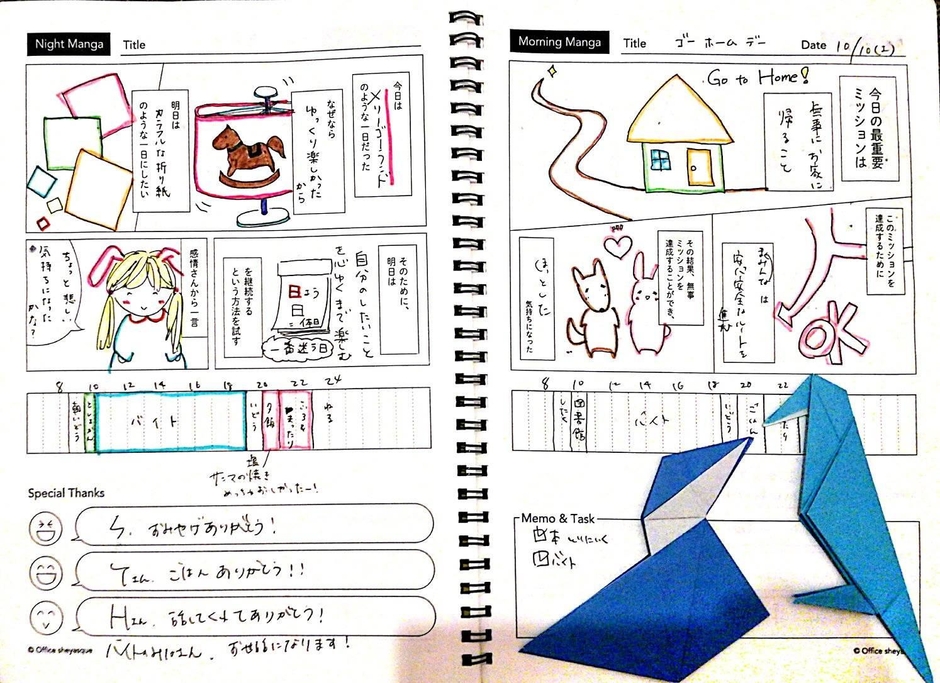 Night Manga
Title
今日は
メリーゴーランド
のような一日だった
なぜなら
ゆっくり楽しかった
から
明日は
カラフルな折り紙
のような一日にしたい
そのために、
明日は
自分のしたいこと
を心ゆくまで楽しむ
を継続する
という方法を試す
日よう
日
=休日
一番迷う日
感情さんから一言
ちょっと悲しい
気持ちになった
かな?
8 10 12 14 16 18 20 22 24
朝いどう
としょかん
バイト
いどう
夕飯
まったり
ねる
塩
サンマの焼き
めっちゃおしかったー!
Special Thanks
S. おみやげありがとう!
Tさん. ごはんありがとう!!
Hさん. 話してくれてありがとう!
おせわになります!
© Office sheyasque
Morning Manga
Title ゴー ホーム デー
Date 10/10(土)
今日の最重要
ミッションは
無事にお家に
帰ること
Go to Home!
このミッションを
達成するために
まみんなは
安心安全なルートを
進む
OK
その結果、無事
ミッションを
達成することができ、
ほっとした
気持ちになった
8 10 12 14 16 18 20 22
したく
図書館
バイト
いどう
ごはん
たり
Memo & Task
本 とりにいく
バイト
© Office sheya